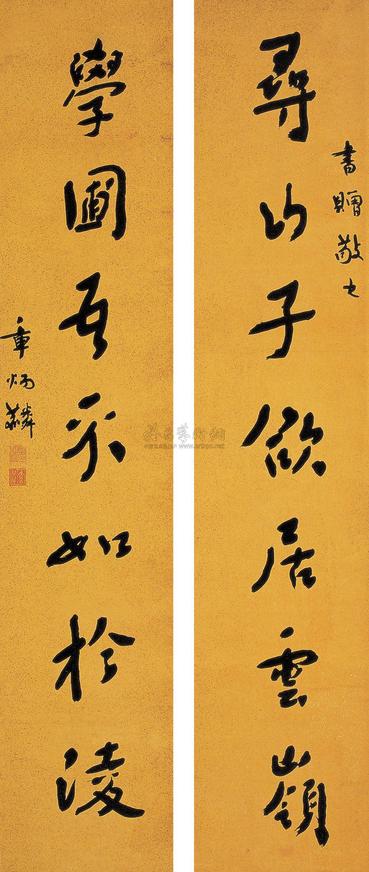 書贈敬
尋山子欲居雲嶺
學圃吾不如於淩
章炳麟